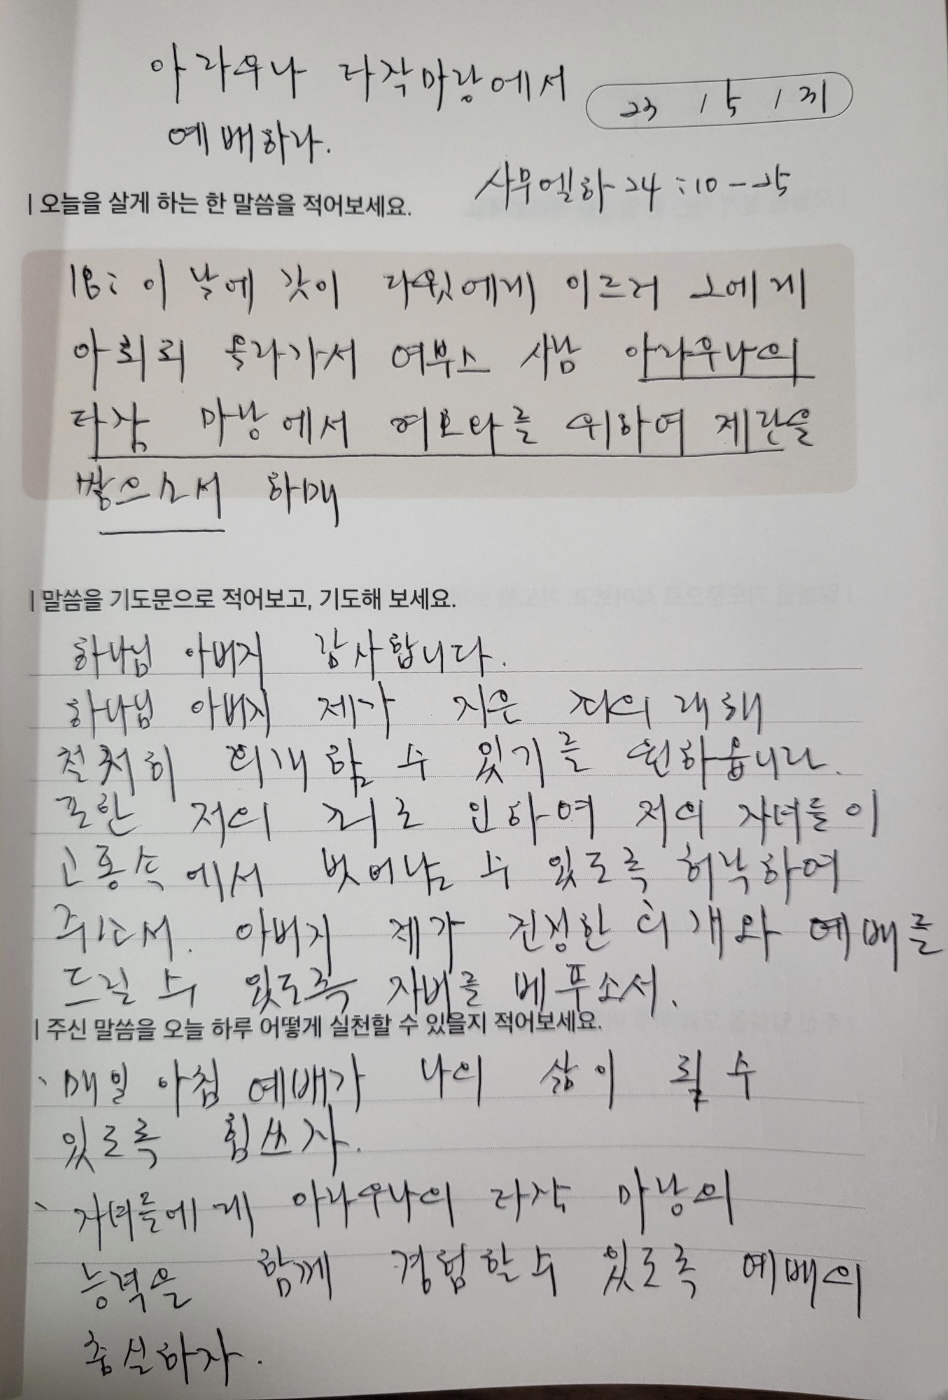 아라우나 타작마당에서
23 / 5 / 31
예배하라.
사무엘하 24:10-25
| 오늘을 살게 하는 한 말씀을 적어보세요.
18: 이 날에 갓이 다윗에게 이르러 그에게
아뢰되 올라가서 여부스 사람 아라우나의
타작 마당에서 여호와를 위하여 제단을
쌓으소서 하매
| 말씀을 기도문으로 적어보고, 기도해 보세요.
하나님 아버지 감사합니다.
하나님 아버지 제가 지은 죄의 대해
철저히 회개할 수 있기를 원하옵니다.
또한 저의 죄로 인하여 저의 자녀들이
고통속에서 벗어날 수 있도록 허락하여
주소서. 아버지 제가 진정한 회개와 예배를
드릴 수 있도록 자비를 베푸소서.
| 주신 말씀을 오늘 하루 어떻게 실천할 수 있을지 적어보세요.
、매일 아침 예배가 나의 삶이 될 수
있도록 힘쓰자.
、자녀들에게 아라우나의 타작 마당의
능력을 함께 경험할 수 있도록 예배의
충실하자.